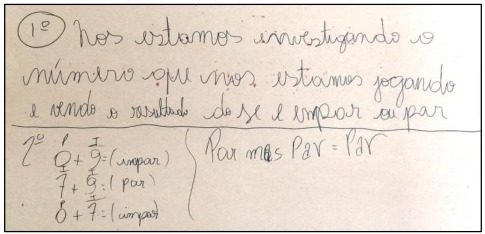 1º Nos estamos investigando o
número que nos estamos jogando
e vendo o resultado do se e impar ou par
2º P I
0 + 9 = (impar)
I I
7 + 9 = (par)
P I
8 + 7 = (impar)
Par mais Par = Par